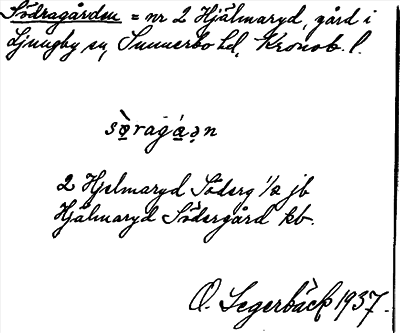 Södragården = nr 2 Hjälmaryd, gård i
Ljungby sn, Sunnerbo hd, Kronob. l.
sø̀ragá̱ə̣n
2 Hjelmaryd Söderg 1/2 jb
Hjälmaryd Södergård kb.
O. Segerbäck 1937.